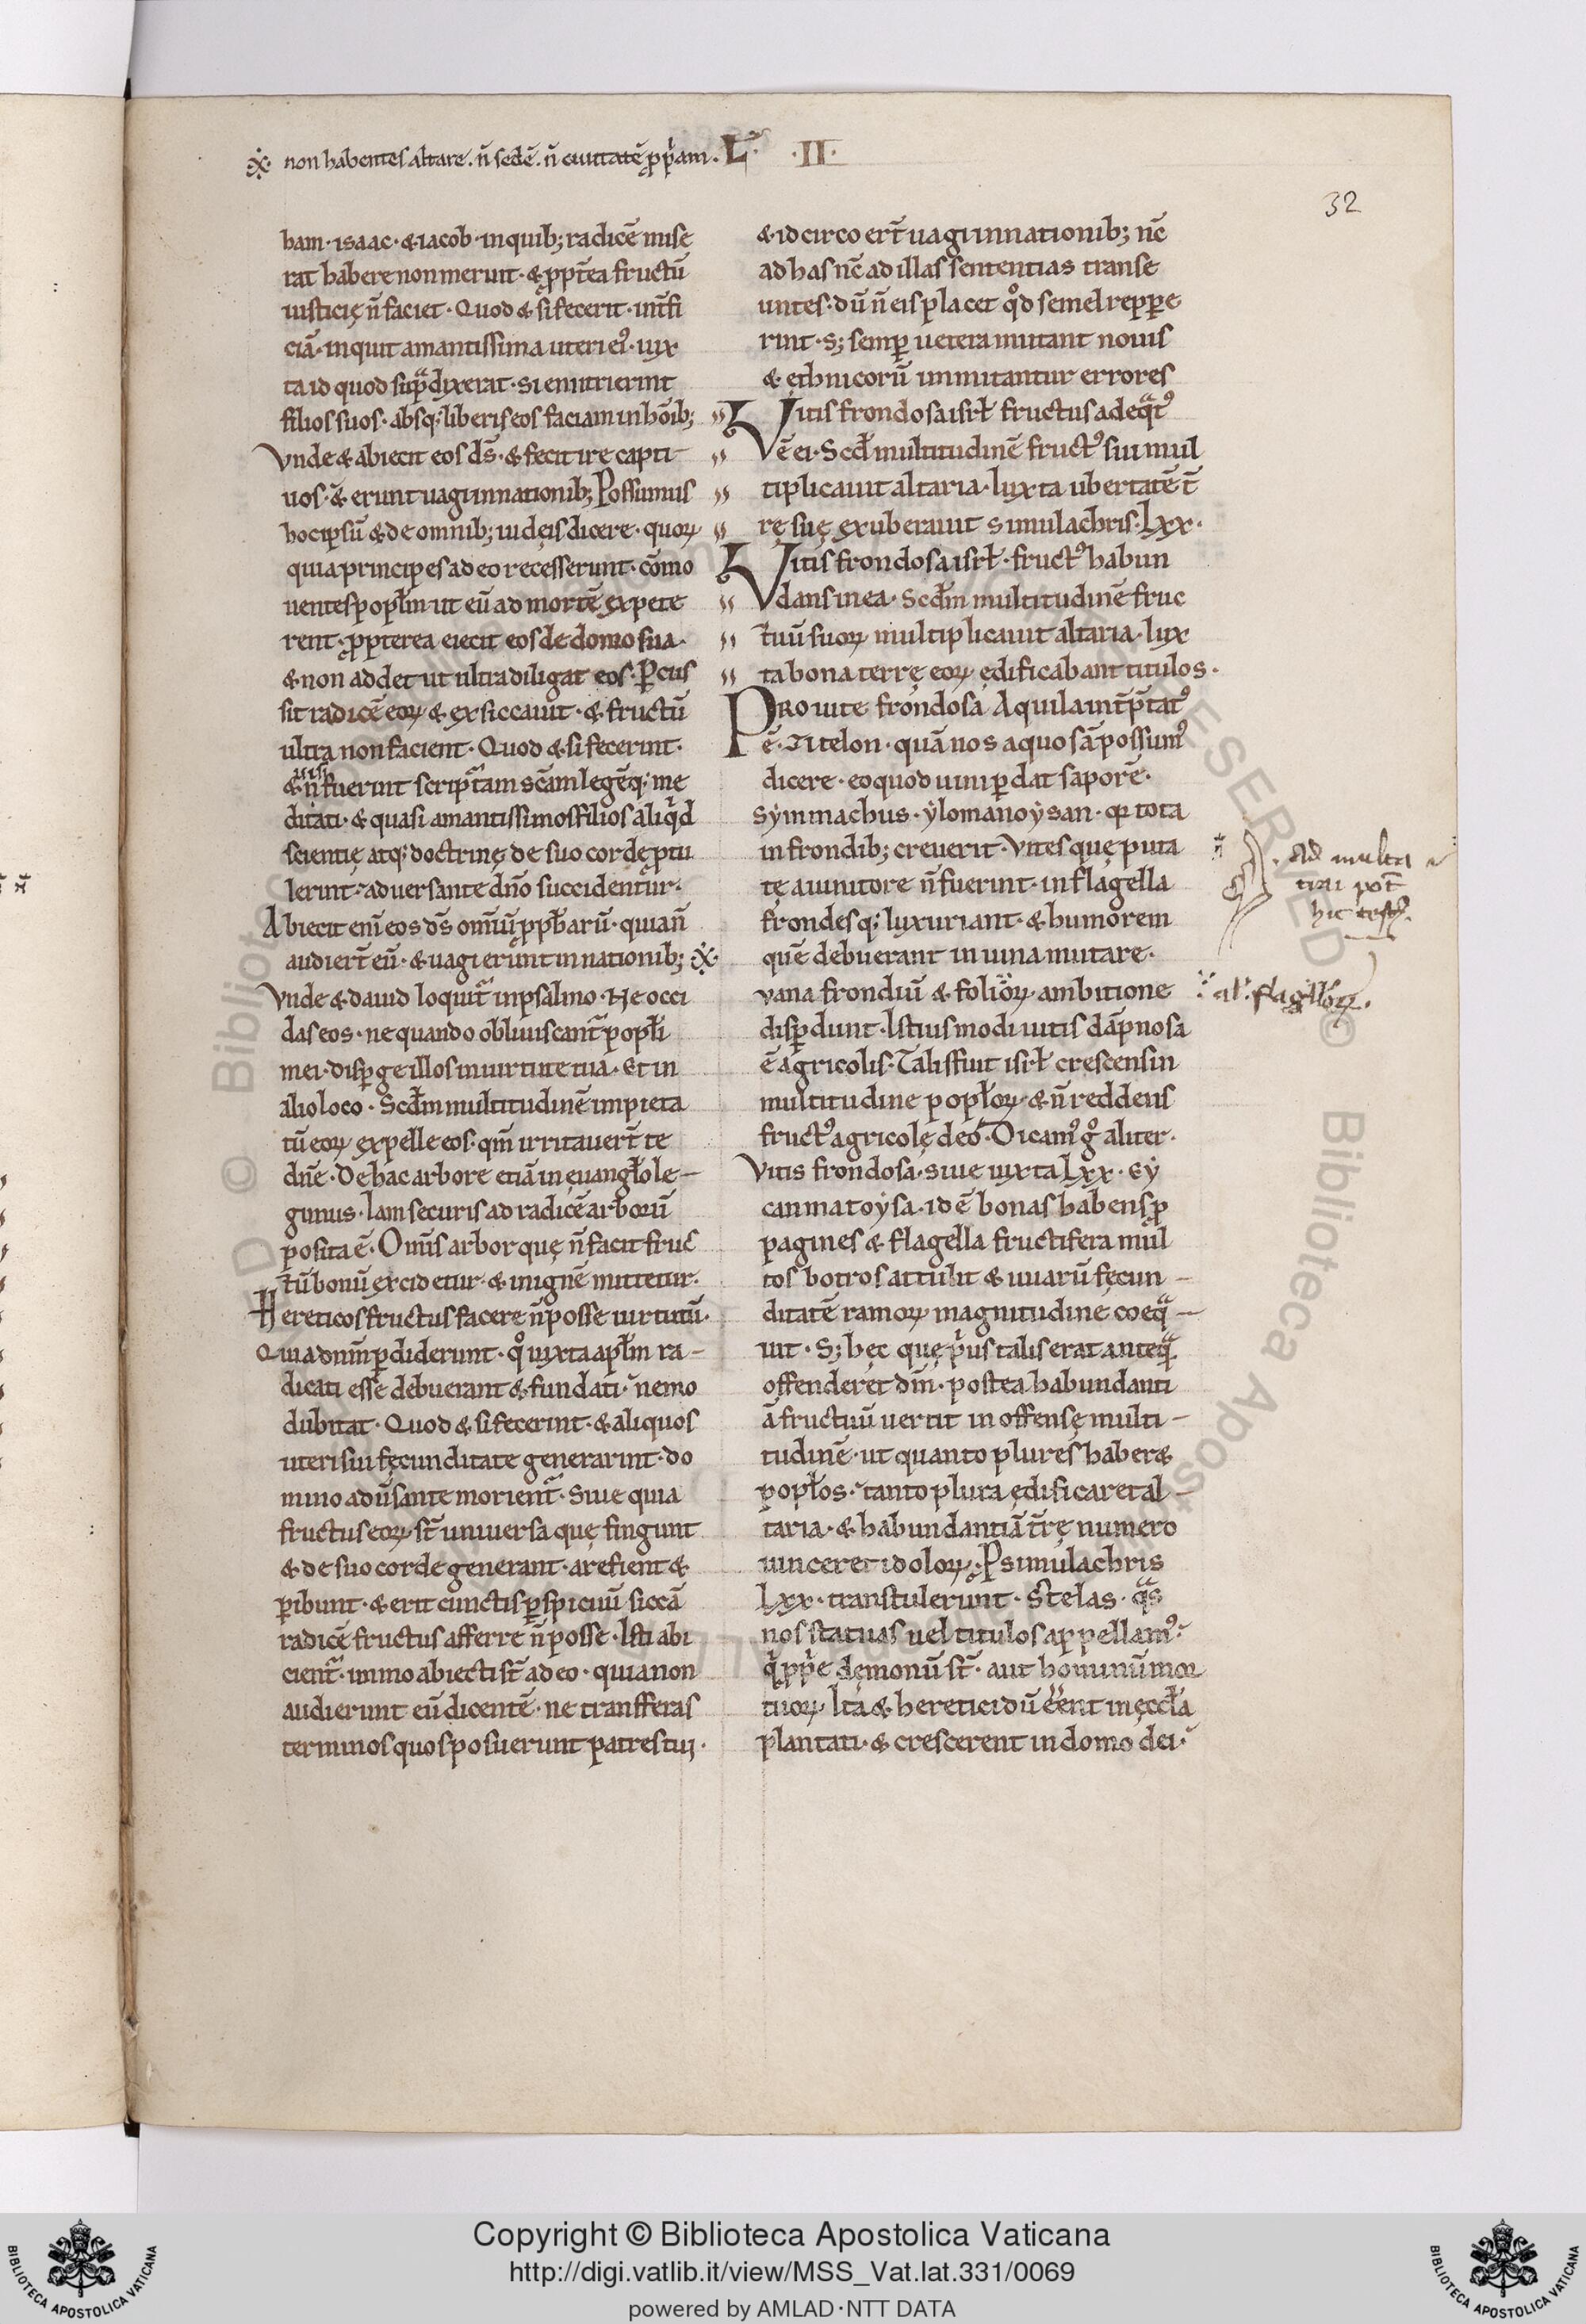 non habentes altare. n̄ sedē. n̄ ciuitatē ꝓpͥam.
Lͬ · II ·
32
ham · isaac · & iacob · in quib; radicē mise
rat habere non meruit · & ꝓpt̄ea fructū
iusticię n̄ faciet · Quod & si fecerit · int̄fi
ciā · inquit amantissima uteri eiꝰ · iux
ta id quod supͣ dixerat · Si enutrierint
filios suos · absq; liberis eos faciam in hōib;
Vnde & abiecit eos d̄s · & fecit ire capti
uos · & erunt uagi in nationib; Possumus
hoc ipsū & de omnib; iudęis dicere · quoꝝ
quia principes a deo recesserunt · cōmo
uentes popl̄m ut eū ad mortē expete
rent · ꝓpterea eiecit eos de domo sua ·
& non addet ut ultra diligat eos · ꝑcus
sit radicē eoꝝ & exsiccauit · & fructū
ultra non facient · Quod & si fecerint ·
uisi
& n̄ fuerint scriptͣam scām legēq; me
ditati · & quasi amantissimos filios aliqͥd
scientię atq; doctrinę de suo corde ptu
lerint · aduersante dn̄o succidentur ·
Abiecit enī eos d̄s om̄iū ꝓphͭarū · quia n̄
audiert̄ eū · & uagi erunt in nationib;
Vnde & dauid loquitͣ in psalmo · Ne occi
das eos · ne quando obliuiscantͣ popl̄i
mei · disꝑge illos in uirtute tua · Et in
alio loco · Scd̄m multitudinē impieta
tū eoꝝ expelle eos · qm̄ irritauert̄ te
dn̄e · De hac arbore etiā in euangl̄o le-
gimus · Iam securis ad radicē arborū
posita ē · Om̄is arbor quę n̄ facit fruc
tū bonū excidetur · & in ignē mittetur ·
Hereticos fructus facere n̄ posse uirtutū ·
Quia dn̄m ꝑdiderunt · qͦ iuxta apl̄m ra-
dicati esse debuerant & fundati · nemo
dubitat · Quod & si fecerint · & aliquos
uteri sui fęcunditate generarint · do
mino adūsante morientͣ · Siue quia
fructus eoꝝ st̄ uniuersa quę fingunt
& de suo corde generant · arefient &
ꝑibunt · & erit cunctis ꝑspicuū siccā
radicē fructus afferre n̄ posse · Isti abi
cientͣ · immo abiecti st̄ a deo · quia non
audierunt eū dicentē · ne transferas
terminos quos posuerunt patres tui ·
& idcirco ert̄ uagi in nationib; nc̄
ad has nc̄ ad illas sententias transe
untes · dū n̄ eis placet qͦd semel reppe
rint · s; semꝑ uetera mutant nouis
& ethnicorū immitantur errores
Vitis frondosa isrl̄ fructus adeqͣtꝰ
ē ei · Scd̄ multitudinē fructꝰ sui mul
tiplicauit altaria · Iuxta ubertatē t̄
rę suę exuberauit simulachris · Lxx ·
Vitis frondosa isrl̄ · fructꝰ habun
dans in ea · Scd̄m multitudinē fruc
tuū suoꝝ multiplicauit altaria · Iux
ta bona terrę eoꝝ ędificabant titulos ·
PRo uite frondosa Aquila int̄p̄tatꝰ
ē · Titelon · quā nos aquosā possumꝰ
dicere · eo quod uini ꝑdat saporē ·
Symmachus · ylomanoysan · qꝫ tota
in frondib; creuerit · Vites quę puta
tę a uinitore n̄ fuerint · in flagella
frondesq; luxuriant · & humorem
quē debuerant in uina mutare ·
vana frondiū & folioꝝ ambitione
disꝑdunt · Istiusmodi uitis dāpnosa
ē agricolis · Talis fuit isrl̄ crescens in
multitudine popl̄oꝝ · & n̄ reddens
fructꝰ agricolę deo · Dicamꝰ gͦ aliter ·
Vitis frondosa · siue iuxta Lxx · Ey
canmatoysa · id ē bonas habens ꝓ
pagines & flagella fructifera mul
tos botros attulit & uuarū fęcun-
ditatē ramoꝝ magnitudine coeqͣ-
uit · S; hęc quę pͥus talis erat anteqͣ
offenderet dm̄ · postea habundanti
ā fructuū uertit in offensę multi-
tudinē · ut quanto plures haber&
popl̄os · tanto plura ędificaret al-
taria · & habundantiā t̄rę numero
uinceret idoloꝝ · ꝓ simulachris
Lxx · transtulerunt · Stelas · qͣs
nos statuas uel titulos appellamꝰ ·
qͥ ꝓpͥe dęmonū st̄ · aut hominū mor
tuoꝝ · Ita & heretici dū eēnt in eccl̄a
plantati · & crescerent in domo dei ·
· Ad multa
trai pot̄
hic
al' · flagelloꝝ ·
Copyright © Biblioteca Apostolica Vaticana
http://digi.vatlib.it/view/MSS_Vat.lat.331/0069
powered by AMLAD·NTT DATA
BIBLIOTECA APOSTOLICA VATICANA
BIBLIOTECA APOSTOLICA VATICANA